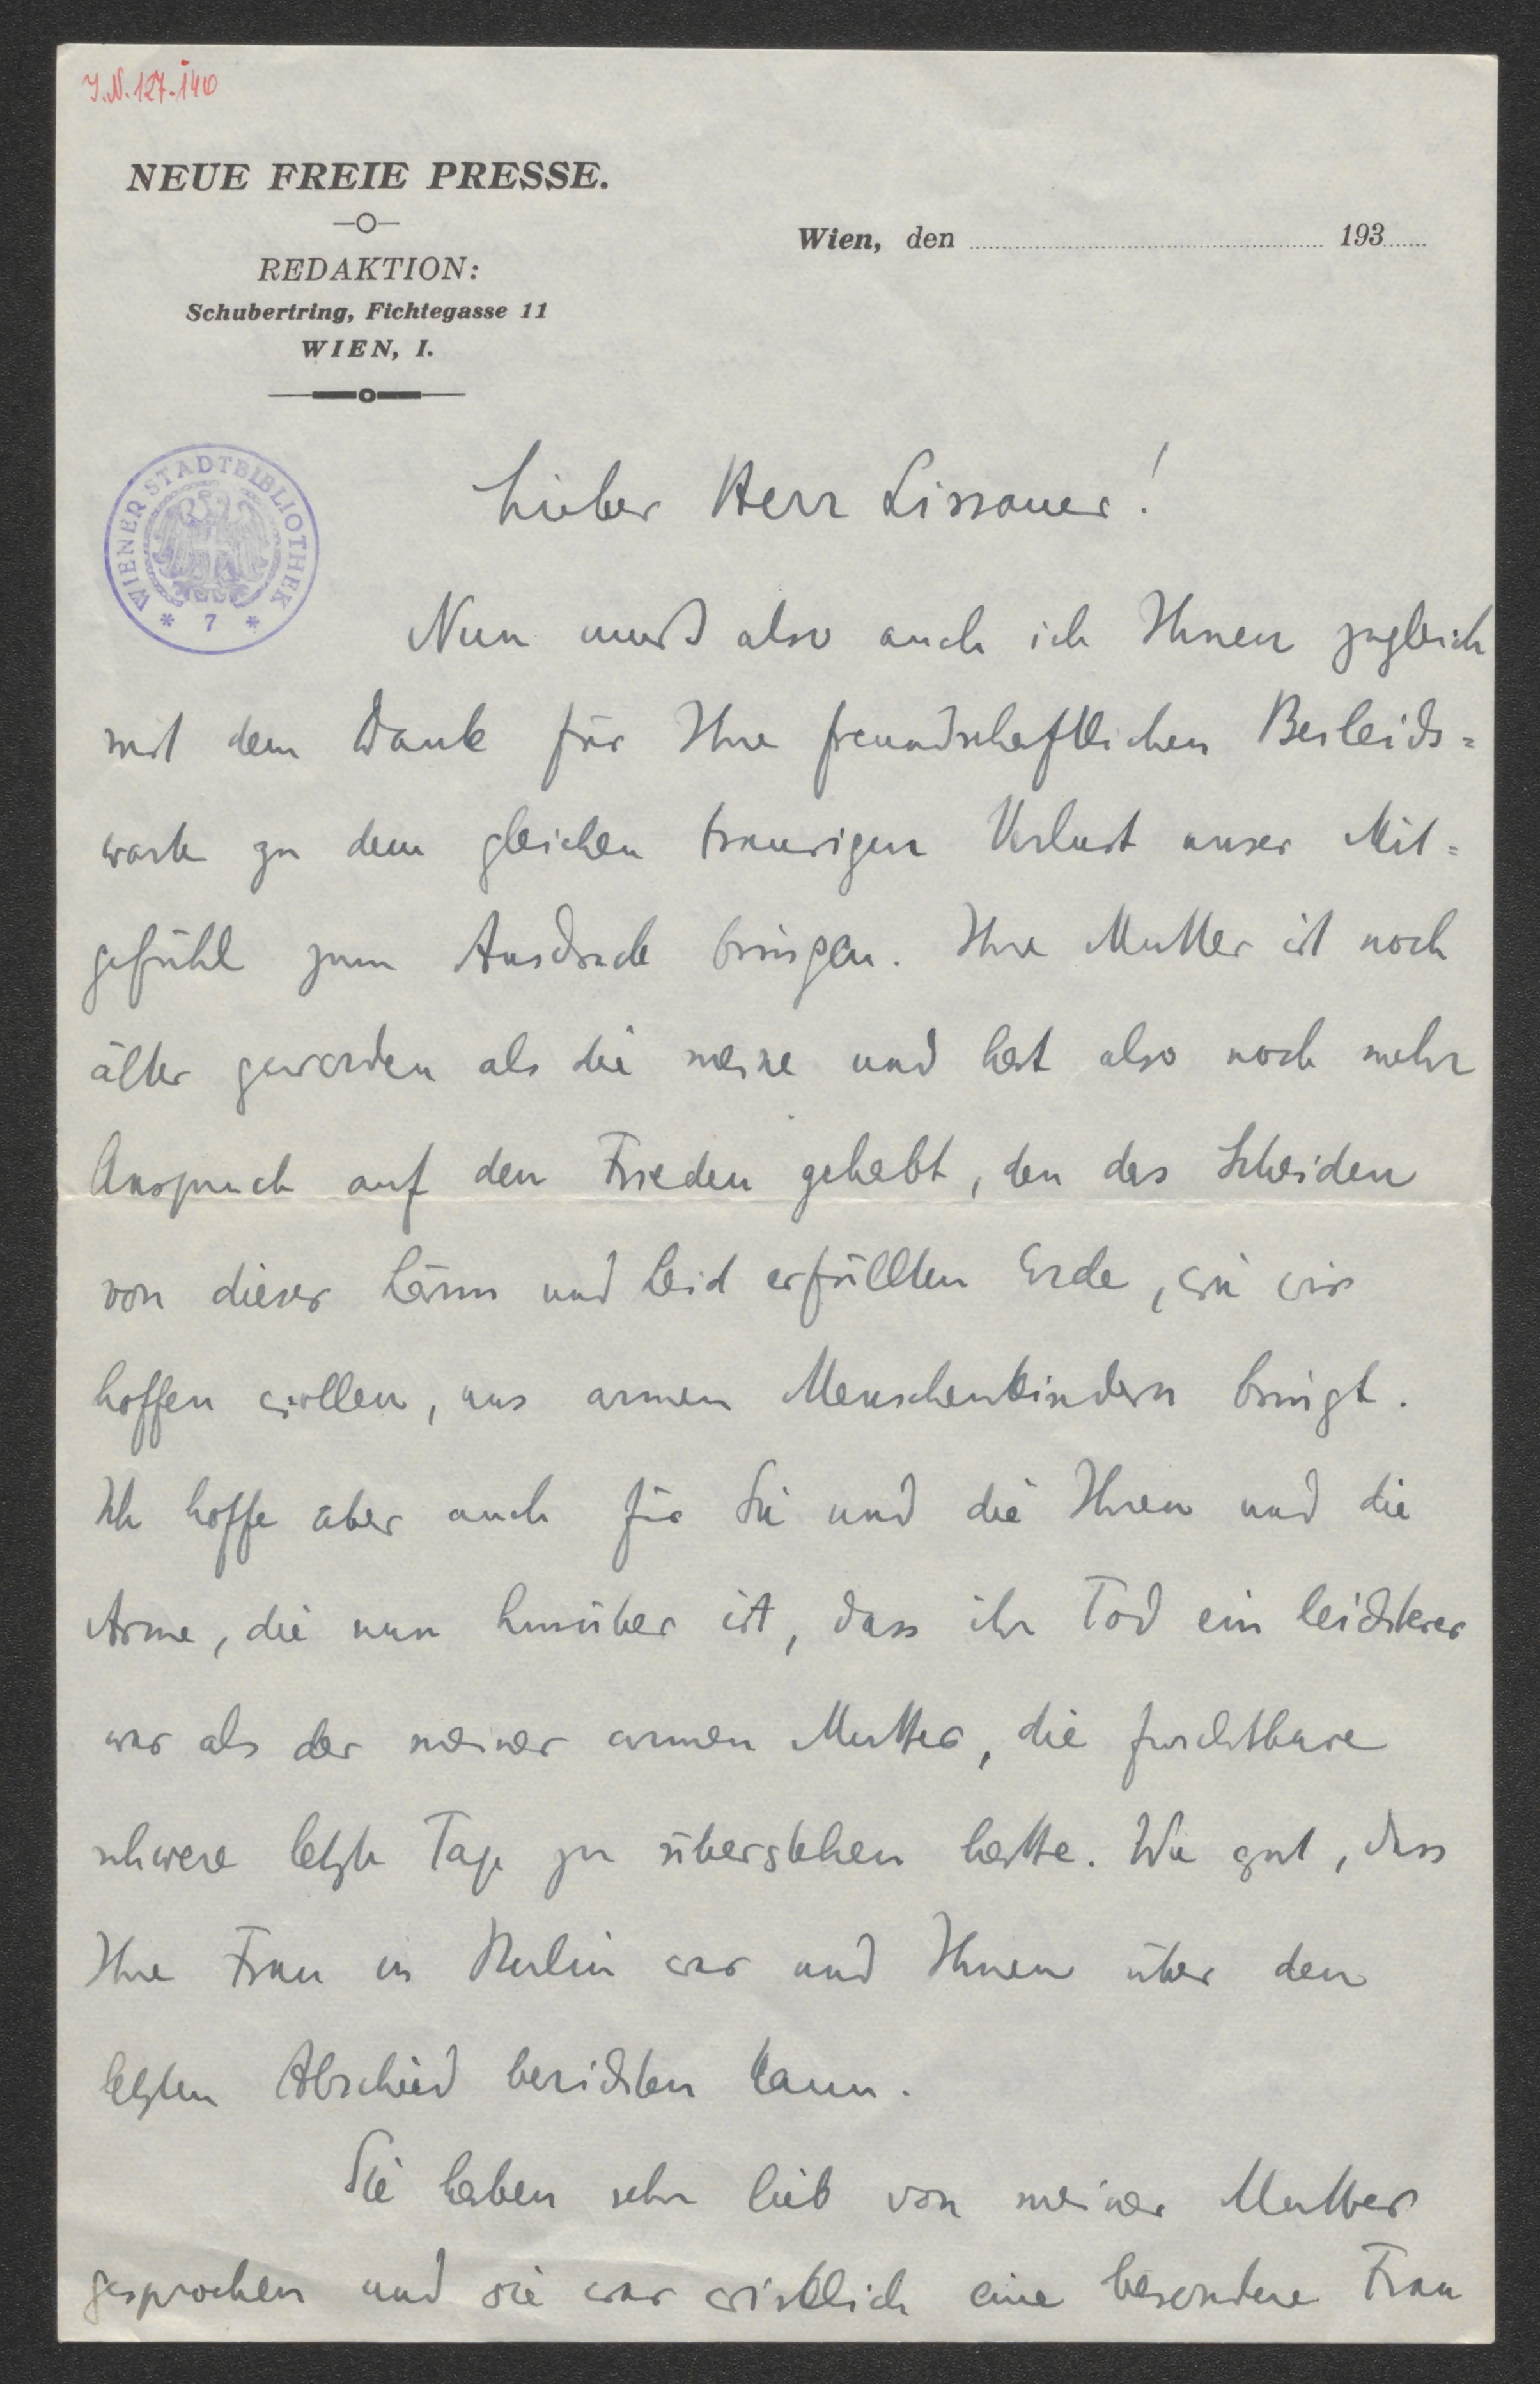 J.N. 127.140
NEUE FREIE PRESSE.
REDAKTION:
Schubertring, Fichtegasse 11
WIEN, I.
Wien, den 193
WIENER STADTBIBLIOTHEK
* 7 *
Lieber Herr Lissauer!
Nun muß also auch ich Ihnen zugleich
mit dem Dank für Ihre freundschaftlichen Beileids=
worte zu dem gleichen traurigen Verlust unser Mit=
gefühl zum Ausdruck bringen. Ihre Mutter ist noch
älter geworden als die meine und hat also noch mehr
Anspruch auf den Frieden gehabt, den das Scheiden
von dieser Lärm und Leid erfüllten Erde, wie wir
hoffen wollen, uns armen Menschenkindern bringt.
Ich hoffe aber auch für Sie und die Ihren und die
Arme, die nun hinüber ist, dass ihr Tod ein leichterer
war als der meiner armen Mutter, die furchtbare
schwere letzte Tage zu überstehen hatte. Wie gut, dass
Ihre Frau in Berlin war und Ihnen über den
letzten Abschied berichten kann.
Sie haben sehr lieb von meiner Mutter
gesprochen und sie war wirklich eine besondere Frau